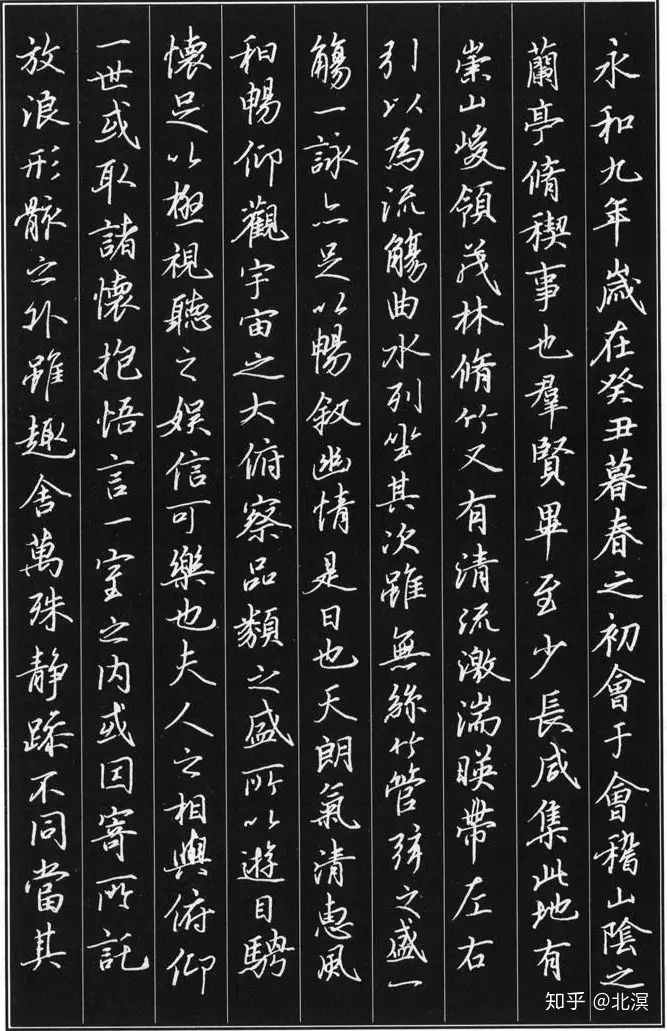 永和九年歲在癸丑暮春之初會于會稽山陰之
蘭亭脩稧事也羣賢畢至少長咸集此地有
崇山峻領茂林脩竹又有清流激湍暎帶左右
引以為流觴曲水列坐其次雖無絲竹管弦之盛一
觴一詠亦足以暢叙幽情是日也天朗氣清惠風
和暢仰觀宇宙之大俯察品類之盛所以遊目騁
懷足以極視聽之娱信可樂也夫人之相與俯仰
一世或取諸懷抱悟言一室之内或因寄所託
放浪形骸之外雖趣舍萬殊静躁不同當其
知乎 @北溟